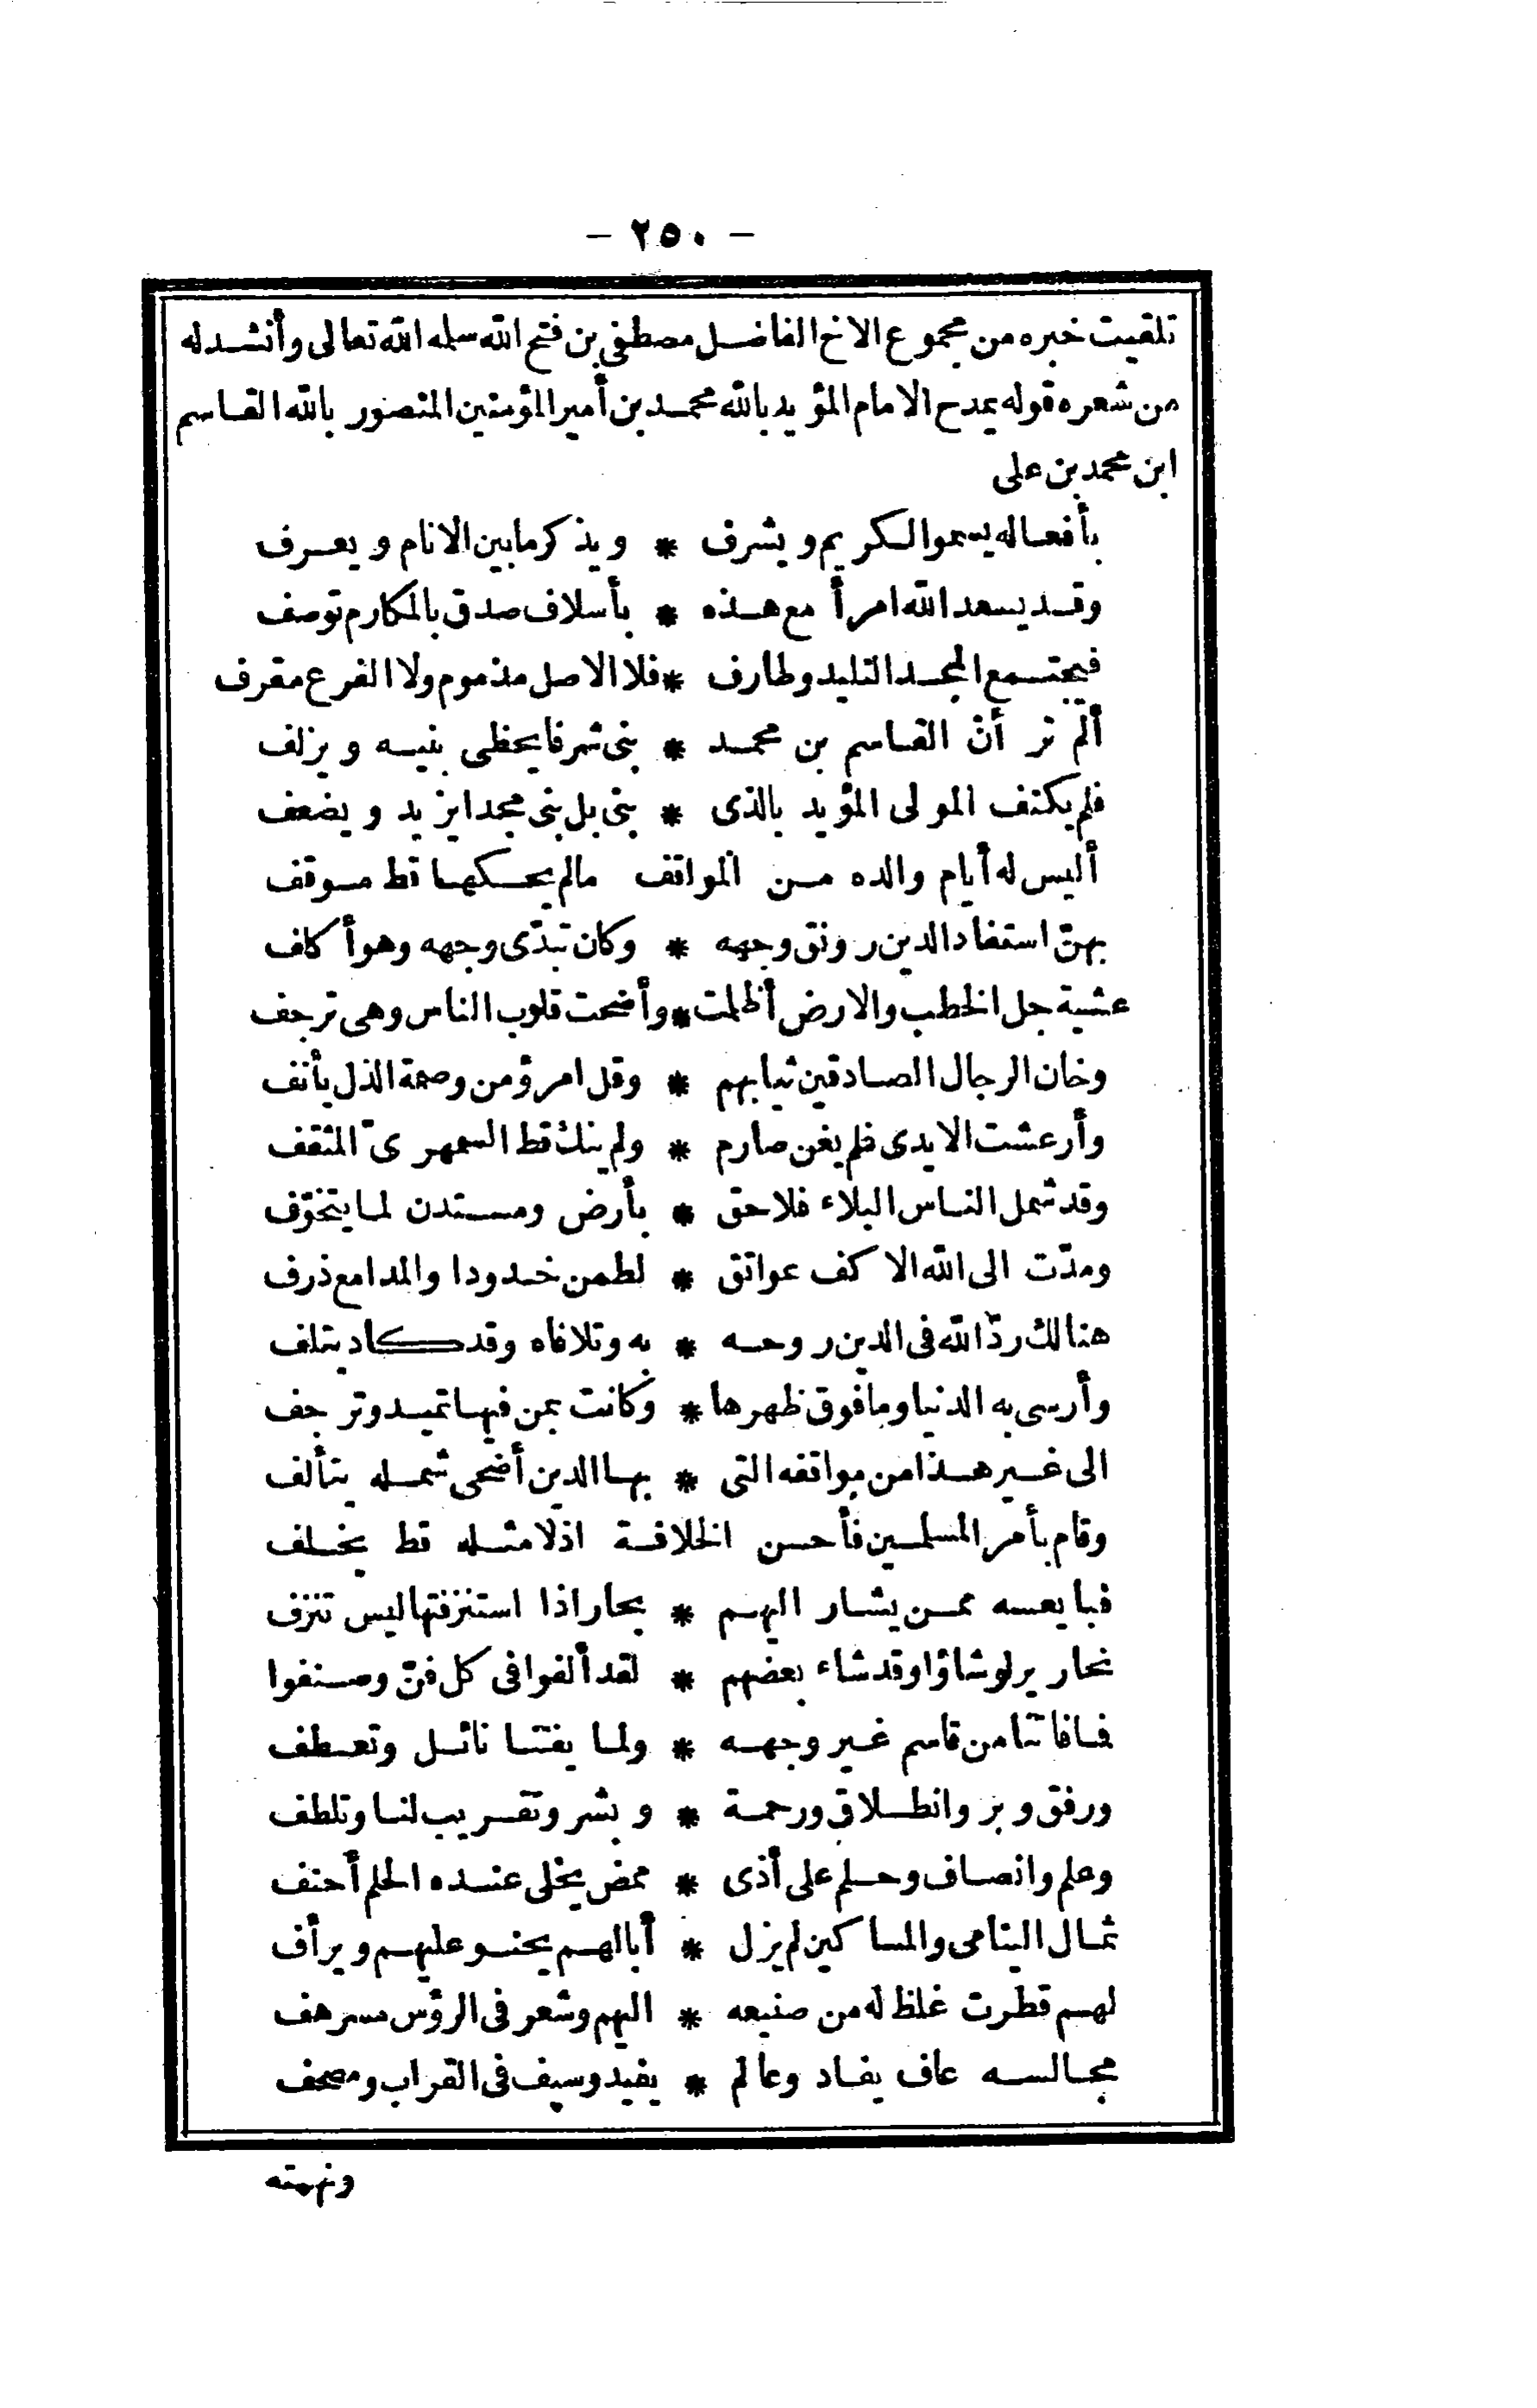 - ٢٥٠ -
تلقيت خبره من مجموع الاخ الفاضل مصطفى بن فتح الله سلمه الله تعالى وأنشد له
من شعره قوله يمدح الامام المؤيد بالله محمد بن أمير المؤمنين المنصور بالله القاسم
ابن محمد بن على
بأفعاله يسمو الكريم ويشرف * ويذكر ما بين الانام ويعرف
وقد يسعد الله امرأ مع هذه * بأسلاف صدق بالمكارم توصف
فيجتمع المجد التليد وطارف * فلا الاصل مذموم ولا الفرع مقرف
ألم تر أنّ القاسم بن محمد * بنى شرفا يحظى بنيه ويزلف
فلم يكتف المولى المؤيد بالذى * بنى بل بنى مجدا يزيد ويضعف
أليس له أيام والده من المواقف مالم يحكها قط موقف
بهنّ استفاد الدين رونق وجهه * وكان تبدّى وجهه وهو أكلف
عشية جل الخطب والارض أظلمت * وأضحت قلوب الناس وهى ترجف
وخان الرجال الصادقين ثيابهم * وقل امرؤ من وصمة الذل يأنف
وأرعشت الايدى فلم يغن صارم * ولم ينك قط السمهرىّ المثقف
وقد شمل الناس البلاء فلاحق * بأرض ومستدن لما يتخوّف
ومدّت الى الله الاكف عواتق * لطمن خدودا والمدامع ذرف
هنالك ردّ الله فى الدين روحه * به وتلافاه وقد كاد يتلف
وأرسى به الدنيا وما فوق ظهرها * وكانت بمن فيها تميد وترجف
الى غير هذا من مواقفه التى * بها الدين أضحى شمله يتألف
وقام بأمر المسلمين فأحسن الخلافة اذلا مثله قط يخلف
فبايعسه ممن يشار اليهم * بحار اذا استنزفتها ليس تنزف
نحارير لو شاؤا وقد شاء بعضهم * لقد ألفوا فى كل فنّ وصنفوا
فما فاتنا من قاسم غير وجهه * ولما يفتنا نائل وتعطف
ورفق وبر وانطلاق ورحمة * وبشر وتقريب لنا وتلطف
وعلم وانصاف وحلم على أذى * ممض يخلى عنده الحلم أحنف
ثمال اليتامى والمساكين لم يزل * أبا لهم يحنو عليهم ويرأف
لهم قطرت غلظ له من صنيعه * اليهم وشعر فى الرؤس مسرهف
مجالسه عاف يفاد وعالم * يفيد وسيف فى القراب ومصحف
ونهمته